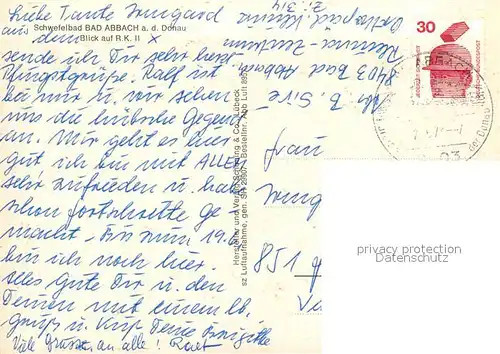 Liebe Tante Irmgard
Schwefelbad BAD ABBACH a. d. Donau
Blick auf R.K. II
aus dem
sende ich Dir sehr herzl.
Pfingstgrüße. Ralf ist
bei mir u. wir sehen
uns die hübsche Gegend
an. Mir geht es hier
gut ich bin mit ALLEN
sehr zufrieden u. hab
schon Fortschritte ge
macht - Bis zum 19.6.
bin ich noch hier.
Alles Gute Dir u. den
Deinen mit einem lb.
Gruß u. Kuß Deine Brigitte
Viele Grüsse an alle!
Hersteller und Verlag Schöning & Co., Lübeck
sz Luftaufnahme, gen. SH
Bestellnr. Abb Luft
Rheuma-Zentrum
8403 Bad Abbach
Z. 314
30
DEUTSCHE BUNDESPOST
der Donau
93
Frau
851
privacy protection
Datenschutz